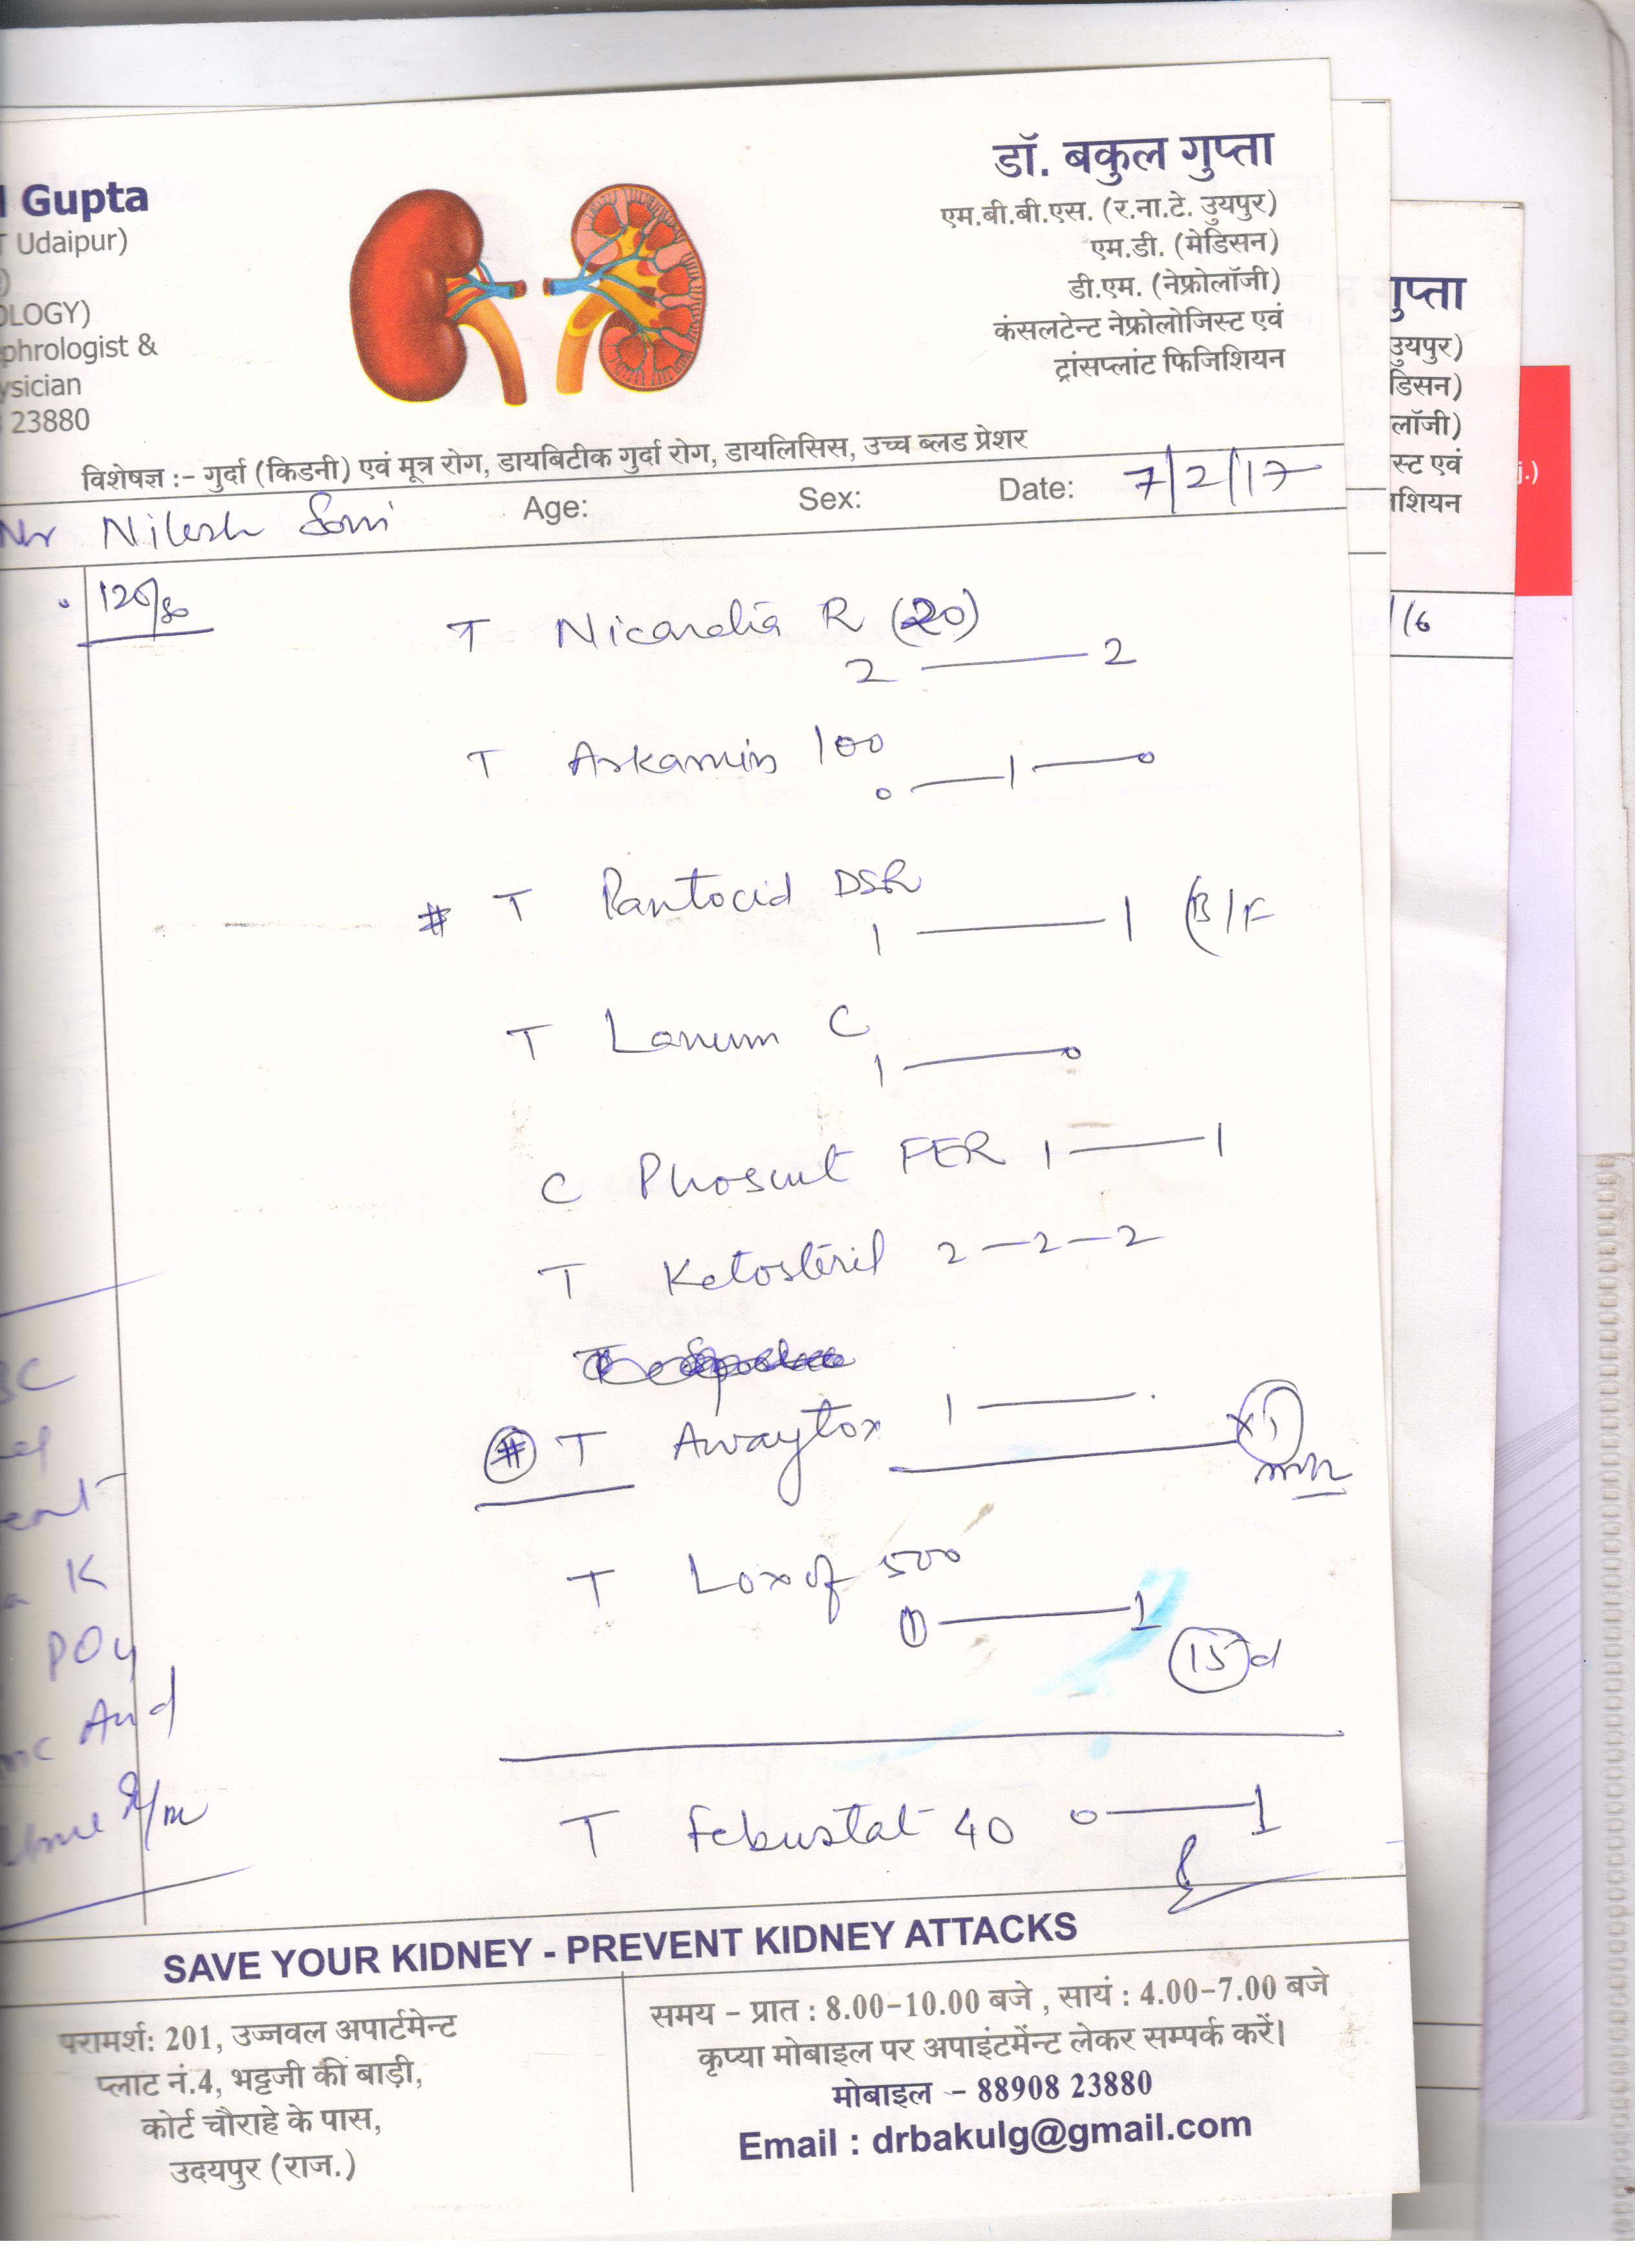 l Gupta
T Udaipur)
)
OLOGY)
phrologist &
ysician
23880
डॉ. बकुल गुप्ता
एम.बी.बी.एस. (र.ना.टे. उुयपुर)
एम.डी. (मेडिसन)
डी.एम. (नेफ्रोलॉजी)
कंसलटेन्ट नेफ्रोलोजिस्ट एवं
ट्रांसप्लांट फिजिशियन
गुप्ता
उुयपुर)
डिसन)
लॉजी)
स्ट एवं
शियन
j.)
विशेषज्ञ :- गुर्दा (किडनी) एवं मूत्र रोग, डायबिटीक गुर्दा रोग, डायलिसिस, उच्च ब्लड प्रेशर
Mr Nilesh Soni Age: Sex: Date: 7/2/17
/16
120/80
T Nicardia R (20)
2 — 2
T Arkamin 100
0 — 1 — 0
# T Pantocid DSR
1 — 1 B/F
T Lanum C
1 — 0
C Phoscut FER 1 — 1
T Ketosteril 2 - 2 - 2
# T Awaytox 1 — . x 1
T Loxof 500
0 — 1
15 d
T Febustat 40 0 — 1
K
PO4
SAVE YOUR KIDNEY - PREVENT KIDNEY ATTACKS
परामर्श: 201, उज्जवल अपार्टमेन्ट
प्लाट नं.4, भट्टजी की बाड़ी,
कोर्ट चौराहे के पास,
उदयपुर (राज.)
समय - प्रात : 8.00-10.00 बजे , सायं : 4.00-7.00 बजे
कृप्या मोबाइल पर अपाइंटमेंन्ट लेकर सम्पर्क करें।
मोबाइल - 88908 23880
Email : drbakulg@gmail.com